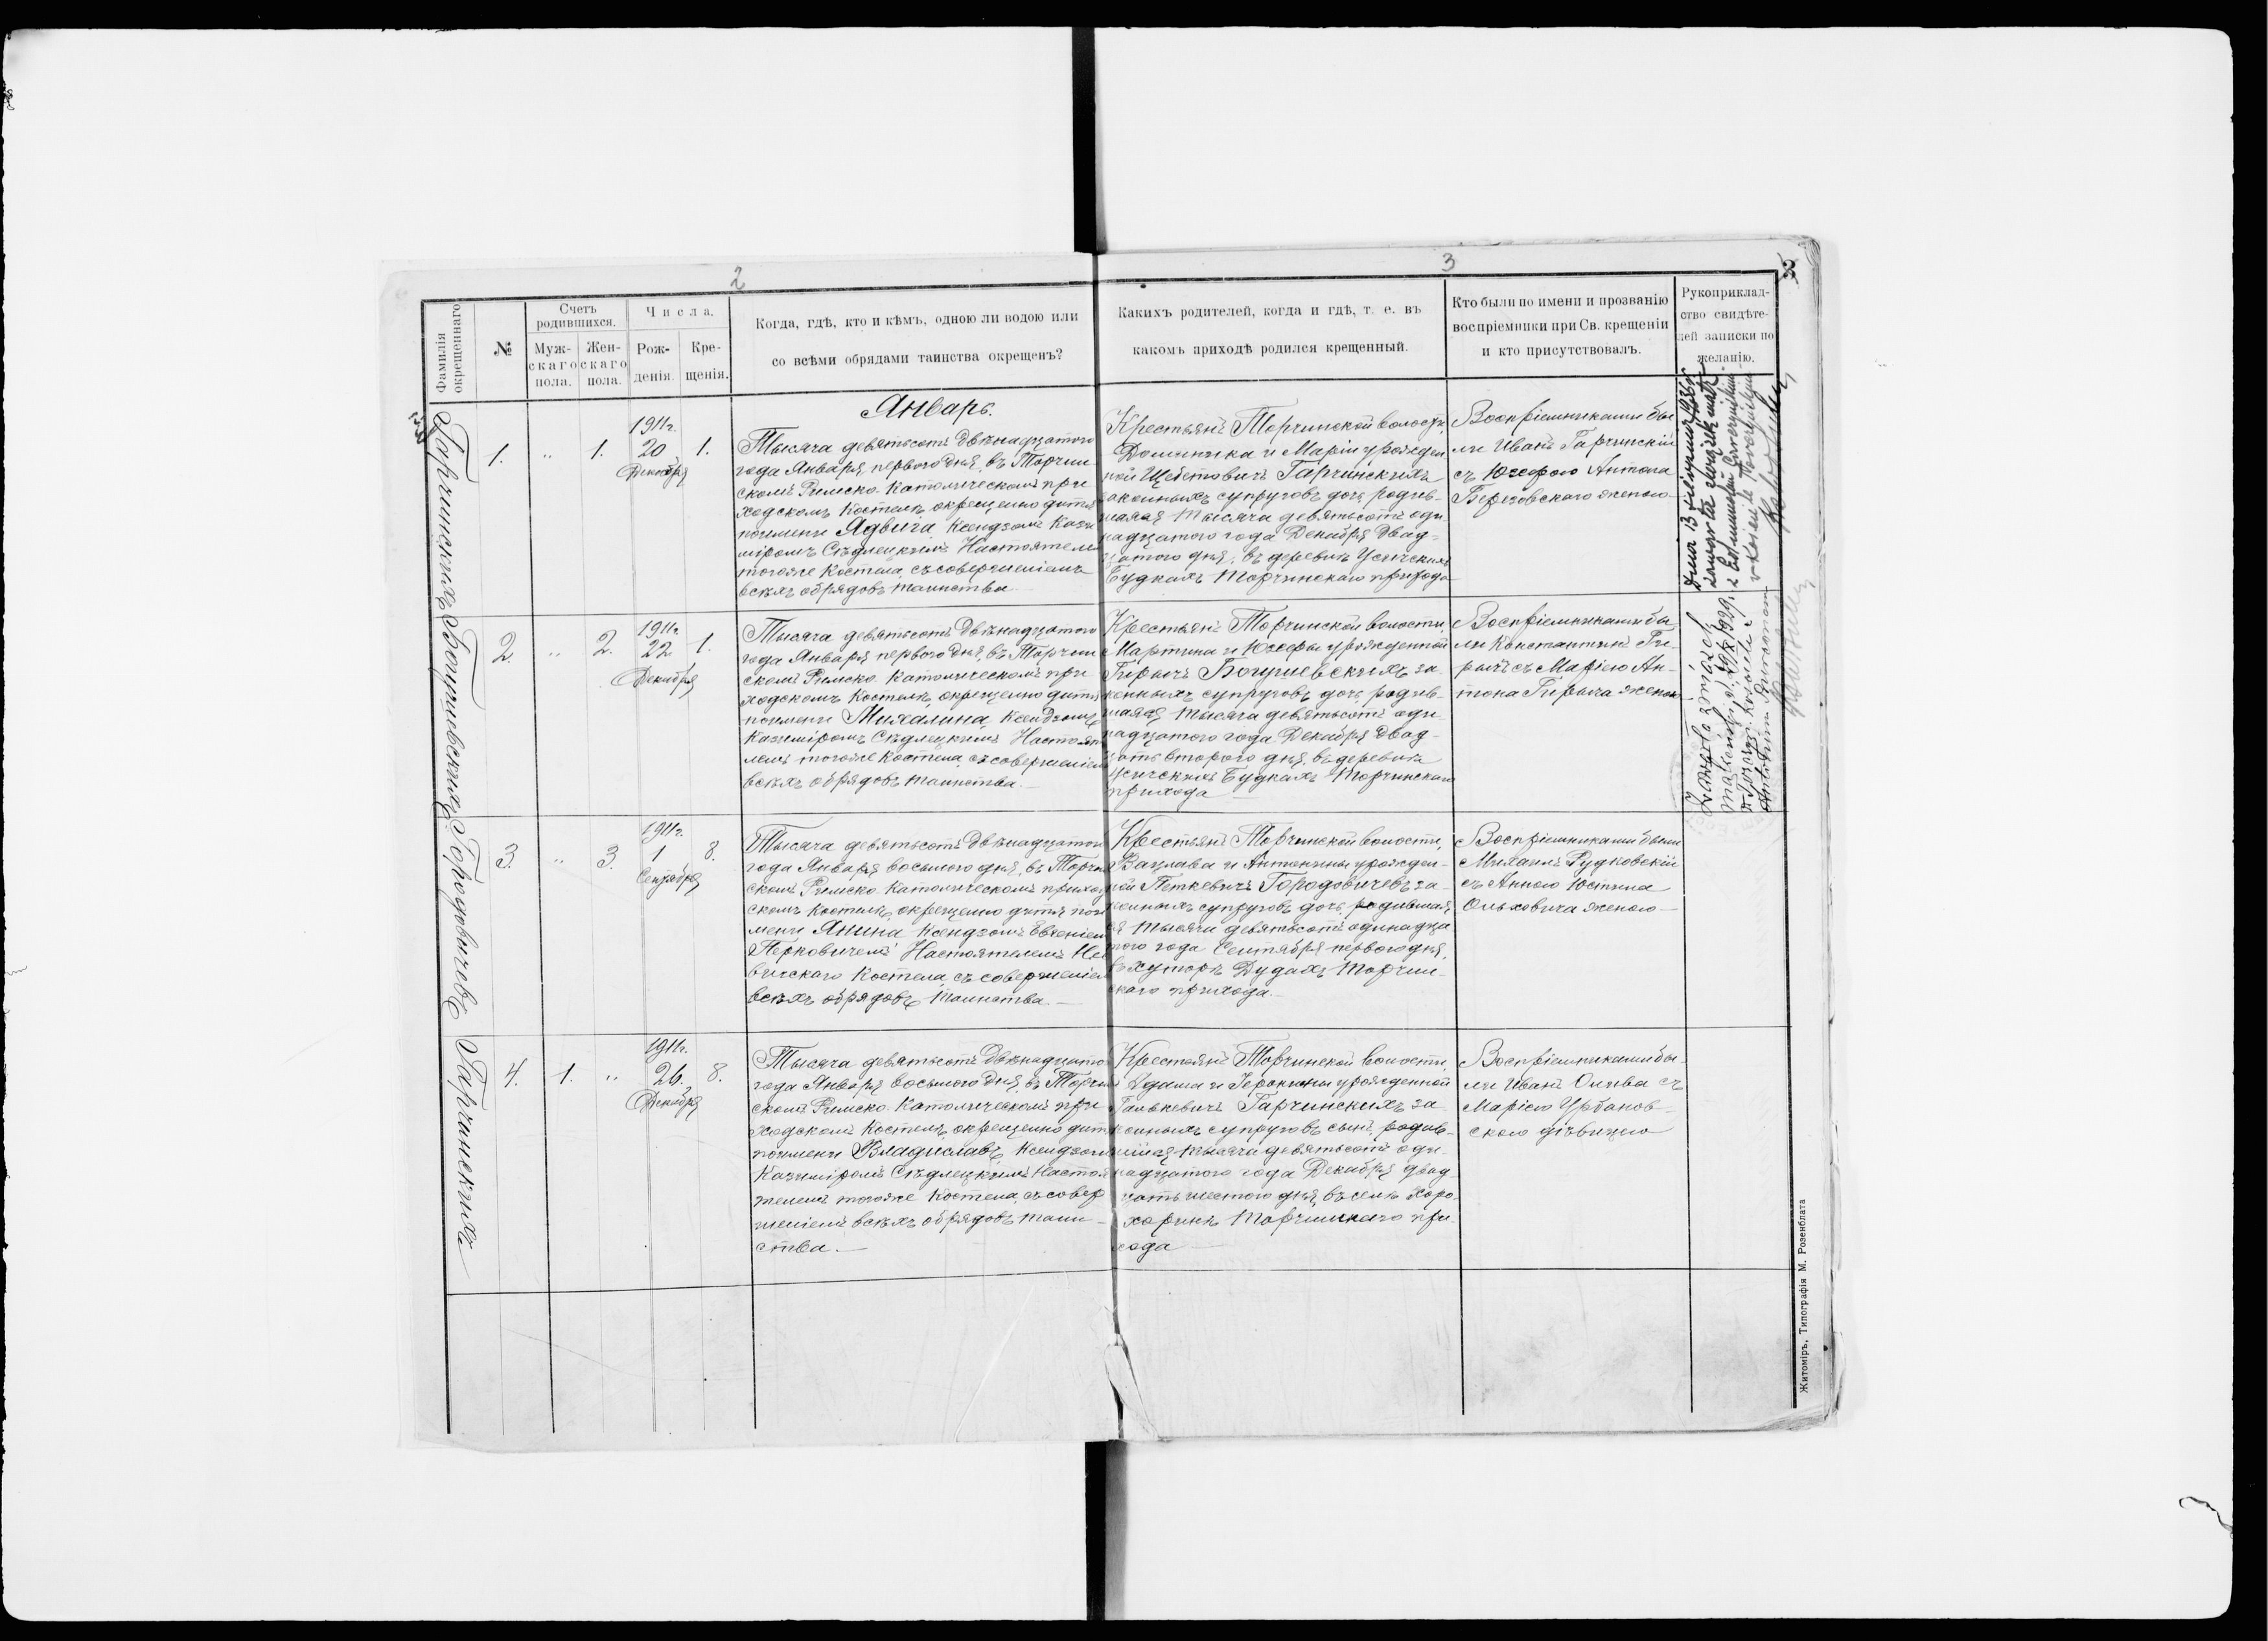 2
3
3
Фамилія окрещеннаго
№
Счетъ родившихся.
Муж-
скаго
пола.
Жен-
скаго
пола.
Числа.
Рож-
денія.
Кре-
щенія.
Когда, гдѣ, кто и кѣмъ, одною ли водою или
со всѣми обрядами таинства окрещенъ?
Какихъ родителей, когда и гдѣ, т. е. въ
какомъ приходѣ родился крещенный.
Кто были по имени и прозванію
воспріемники при Св. крещеніи
и кто присутствовалъ.
Рукоприклад-
ство свидѣте-
лей записки по
желанію.
Январь.
Гарчинскихъ
1.
"
1.
1911г.
20
Декабря
1.
Тысяча девятьсотъ двѣнадцатого
года Января первого дня, въ Торчин
скомъ Римско-Католическомъ при
ходскомъ Костелѣ окрещено дитя
по имени Ядвига Ксендзомъ Кази
міромъ Сѣдлецкимъ Настоятелем
тогоже Костела, съ совершеніемъ
всѣхъ обрядовъ таинства
Крестьянъ Торчинской волости,
Доминика и Маріи урожден
ной Щебетовичъ Гарчинскихъ
законныхъ супруговъ дочь, родив-
шаяся тысяча девятьсотъ оди-
надцатого года Декабря двад-
цатого дня, въ деревнѣ Усичскихъ
Будкахъ Торчинскаго прихода
Воспріемниками бы
ли Иванъ Гарчинскій
съ Юзефою Антона
Березовскаго женою
Dnia 13 1936r.
zawarła związek małż.
z
w kościele
Богушевскихъ
2.
"
2.
1911г.
22
Декабря
1.
Тысяча девятьсотъ двѣнадцатого
года Января первого дня, въ Торчин
скомъ Римско-Католическомъ при
ходскомъ Костелѣ, окрещено дитя
по имени Михалина, Ксендзомъ
Казиміромъ Сѣдлецкимъ Настояте
лемъ тогоже Костела, съ совершеніем
всѣхъ обрядовъ таинства.
Крестьянъ Торчинской волости,
Мартина и Юзефы урожденной
Гирычъ Богушевскихъ за-
конныхъ супруговъ дочь, родив-
шаяся тысяча девятьсотъ оди-
надцатого года Декабря двад-
цать второго дня, въ деревнѣ
Усичскихъ Будкахъ Торчинскаго
прихода
Воспріемниками бы-
ли Константинъ Ги-
рычъ съ Маріею Ан-
тона Гирыча женою
Zawarto związek
małżeński d. 1929
w kościele z
Antonim
Городовичовъ
3.
"
3.
1911г.
1
Сентября
8.
Тысяча девятьсотъ двѣнадцатого
года Января восьмого дня, въ Торчин
скомъ Римско-Католическомъ приход
скомъ Костелѣ, окрещено дитя по и
мени Янина Ксендзомъ Евгеніем
Перковичемъ Настоятелемъ Не
вичскаго Костела, съ совершеніем
всѣхъ обрядовъ таинства.
Крестьянъ Торчинской волости,
Вацлава и Антонины урожден-
ной Петкевичъ Городовичевъ за-
конныхъ супруговъ дочь, родивша-
яся тысяча девятьсотъ одинадца
того года Сентября первого дня,
въ хуторѣ Дудахъ Торчин-
скаго прихода.
Воспріемниками были
Михаилъ Рудковскій
съ Анною Юстина
Ольховича женою
Гарчинскихъ
4.
1.
"
1911г.
26.
Декабря
8.
Тысяча девятьсотъ двѣнадцатого
года Января восьмого дня, въ Торчин
скомъ Римско-Католическомъ при
ходскомъ Костелѣ, окрещено дитя
по имени Владиславъ, Ксендзомъ
Казиміромъ Сѣдлецкимъ Настоя
телемъ тогоже Костела, съ совер
шеніемъ всѣхъ обрядовъ таин-
ства.
Крестьянъ Торчинской волости,
Адама и Геронимы урожденной
Галькевичъ Гарчинскихъ за-
конныхъ супруговъ сынъ, родив-
шійся тысяча девятьсотъ оди-
надцатого года Декабря двад-
цать шестого дня, въ селѣ Хоро-
хоринѣ Торчинскаго при-
хода
Воспріемниками бы-
ли Иванъ Олива съ
Маріею Урбанов-
скою дѣвицею
Житоміръ, Типографія М. Розенблата